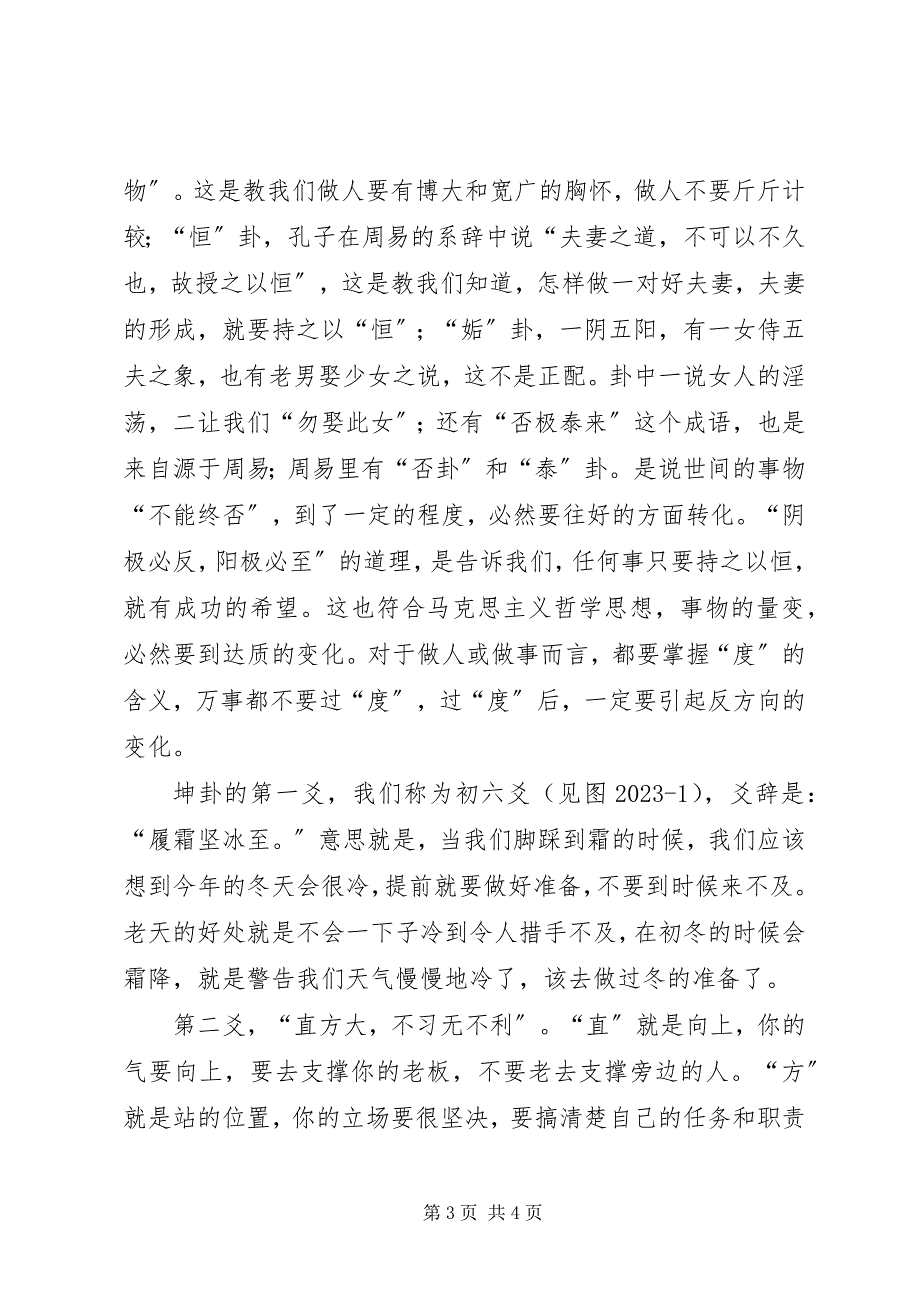 物〞。这是教我们做人要有博大和宽广的胸怀，做人不要斤斤计
较；“恒〞卦，孔子在周易的系辞中说“夫妻之道，不可以不久
也，故授之以恒〞，这是教我们知道，怎样做一对好夫妻，夫妻
的形成，就要持之以“恒〞；“姤〞卦，一阴五阳，有一女侍五
夫之象，也有老男娶少女之说，这不是正配。卦中一说女人的淫
荡，二让我们“勿娶此女〞；还有“否极泰来〞这个成语，也是
来自源于周易；周易里有“否卦〞和“泰〞卦。是说世间的事物
“不能终否〞，到了一定的程度，必然要往好的方面转化。“阴
极必反，阳极必至〞的道理，是告诉我们，任何事只要持之以恒，
就有成功的希望。这也符合马克思主义哲学思想，事物的量变，
必然要到达质的变化。对于做人或做事而言，都要掌握“度〞的
含义，万事都不要过“度〞，过“度〞后，一定要引起反方向的
变化。
坤卦的第一爻，我们称为初六爻（见图2023-1），爻辞是：
“履霜坚冰至。〞意思就是，当我们脚踩到霜的时候，我们应该
想到今年的冬天会很冷，提前就要做好准备，不要到时候来不及。
老天的好处就是不会一下子冷到令人措手不及，在初冬的时候会
霜降，就是警告我们天气慢慢地冷了，该去做过冬的准备了。
第二爻，“直方大，不习无不利〞。“直〞就是向上，你的
气要向上，要去支撑你的老板，不要老去支撑旁边的人。“方〞
就是站的位置，你的立场要很坚决，要搞清楚自己的任务和职责
第 3 页 共 4 页